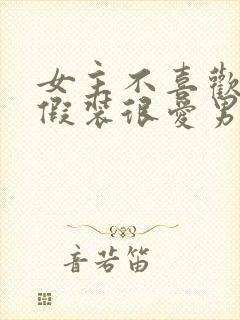 女主不喜歡
假裝很愛男
音若笛